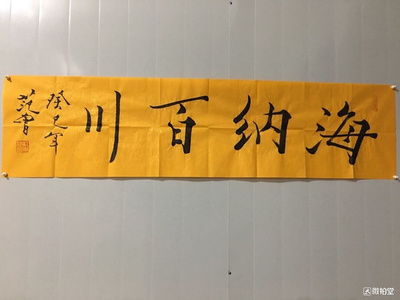 海纳百川
癸巳年
范曾
微拍堂